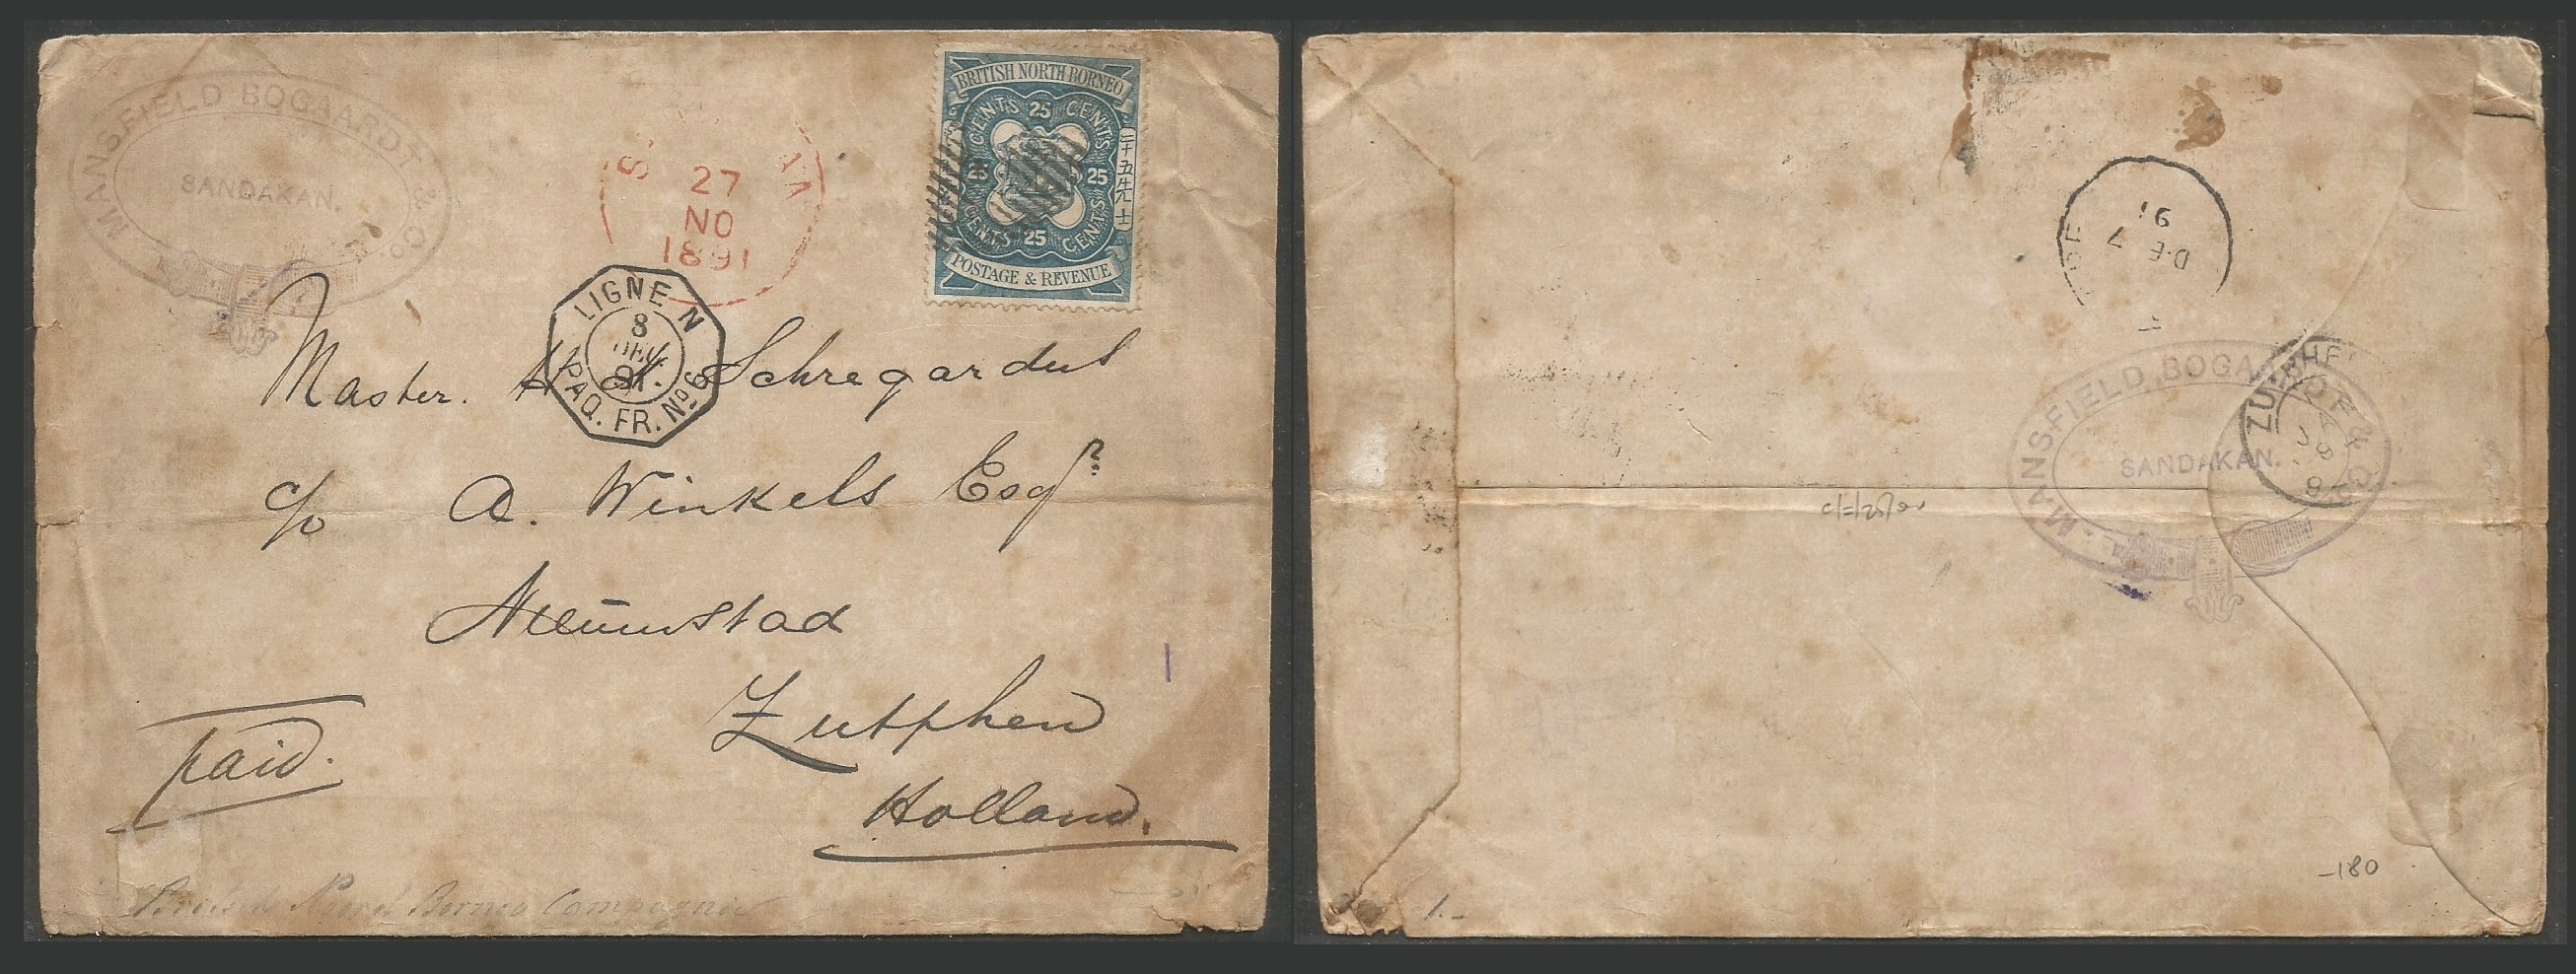 MANSFIELD BOGAARDT & Co.
SANDAKAN.
27
NO
1891
BRITISH NORTH BORNEO
CENTS 25 CENTS
25 25
CENTS 25 CENTS
二十五先士
POSTAGE & REVENUE
LIGNE N
8
DEC.
91
PAQ. FR. No 6
Master. H Schregardus
c/o A. Winkels Esqr
Zutphen
Holland.
paid.
Borneo Compagnie
DE 7
91
MANSFIELD BOGAARDT & Co.
SANDAKAN.
ZUTPHEN
-180
1.-